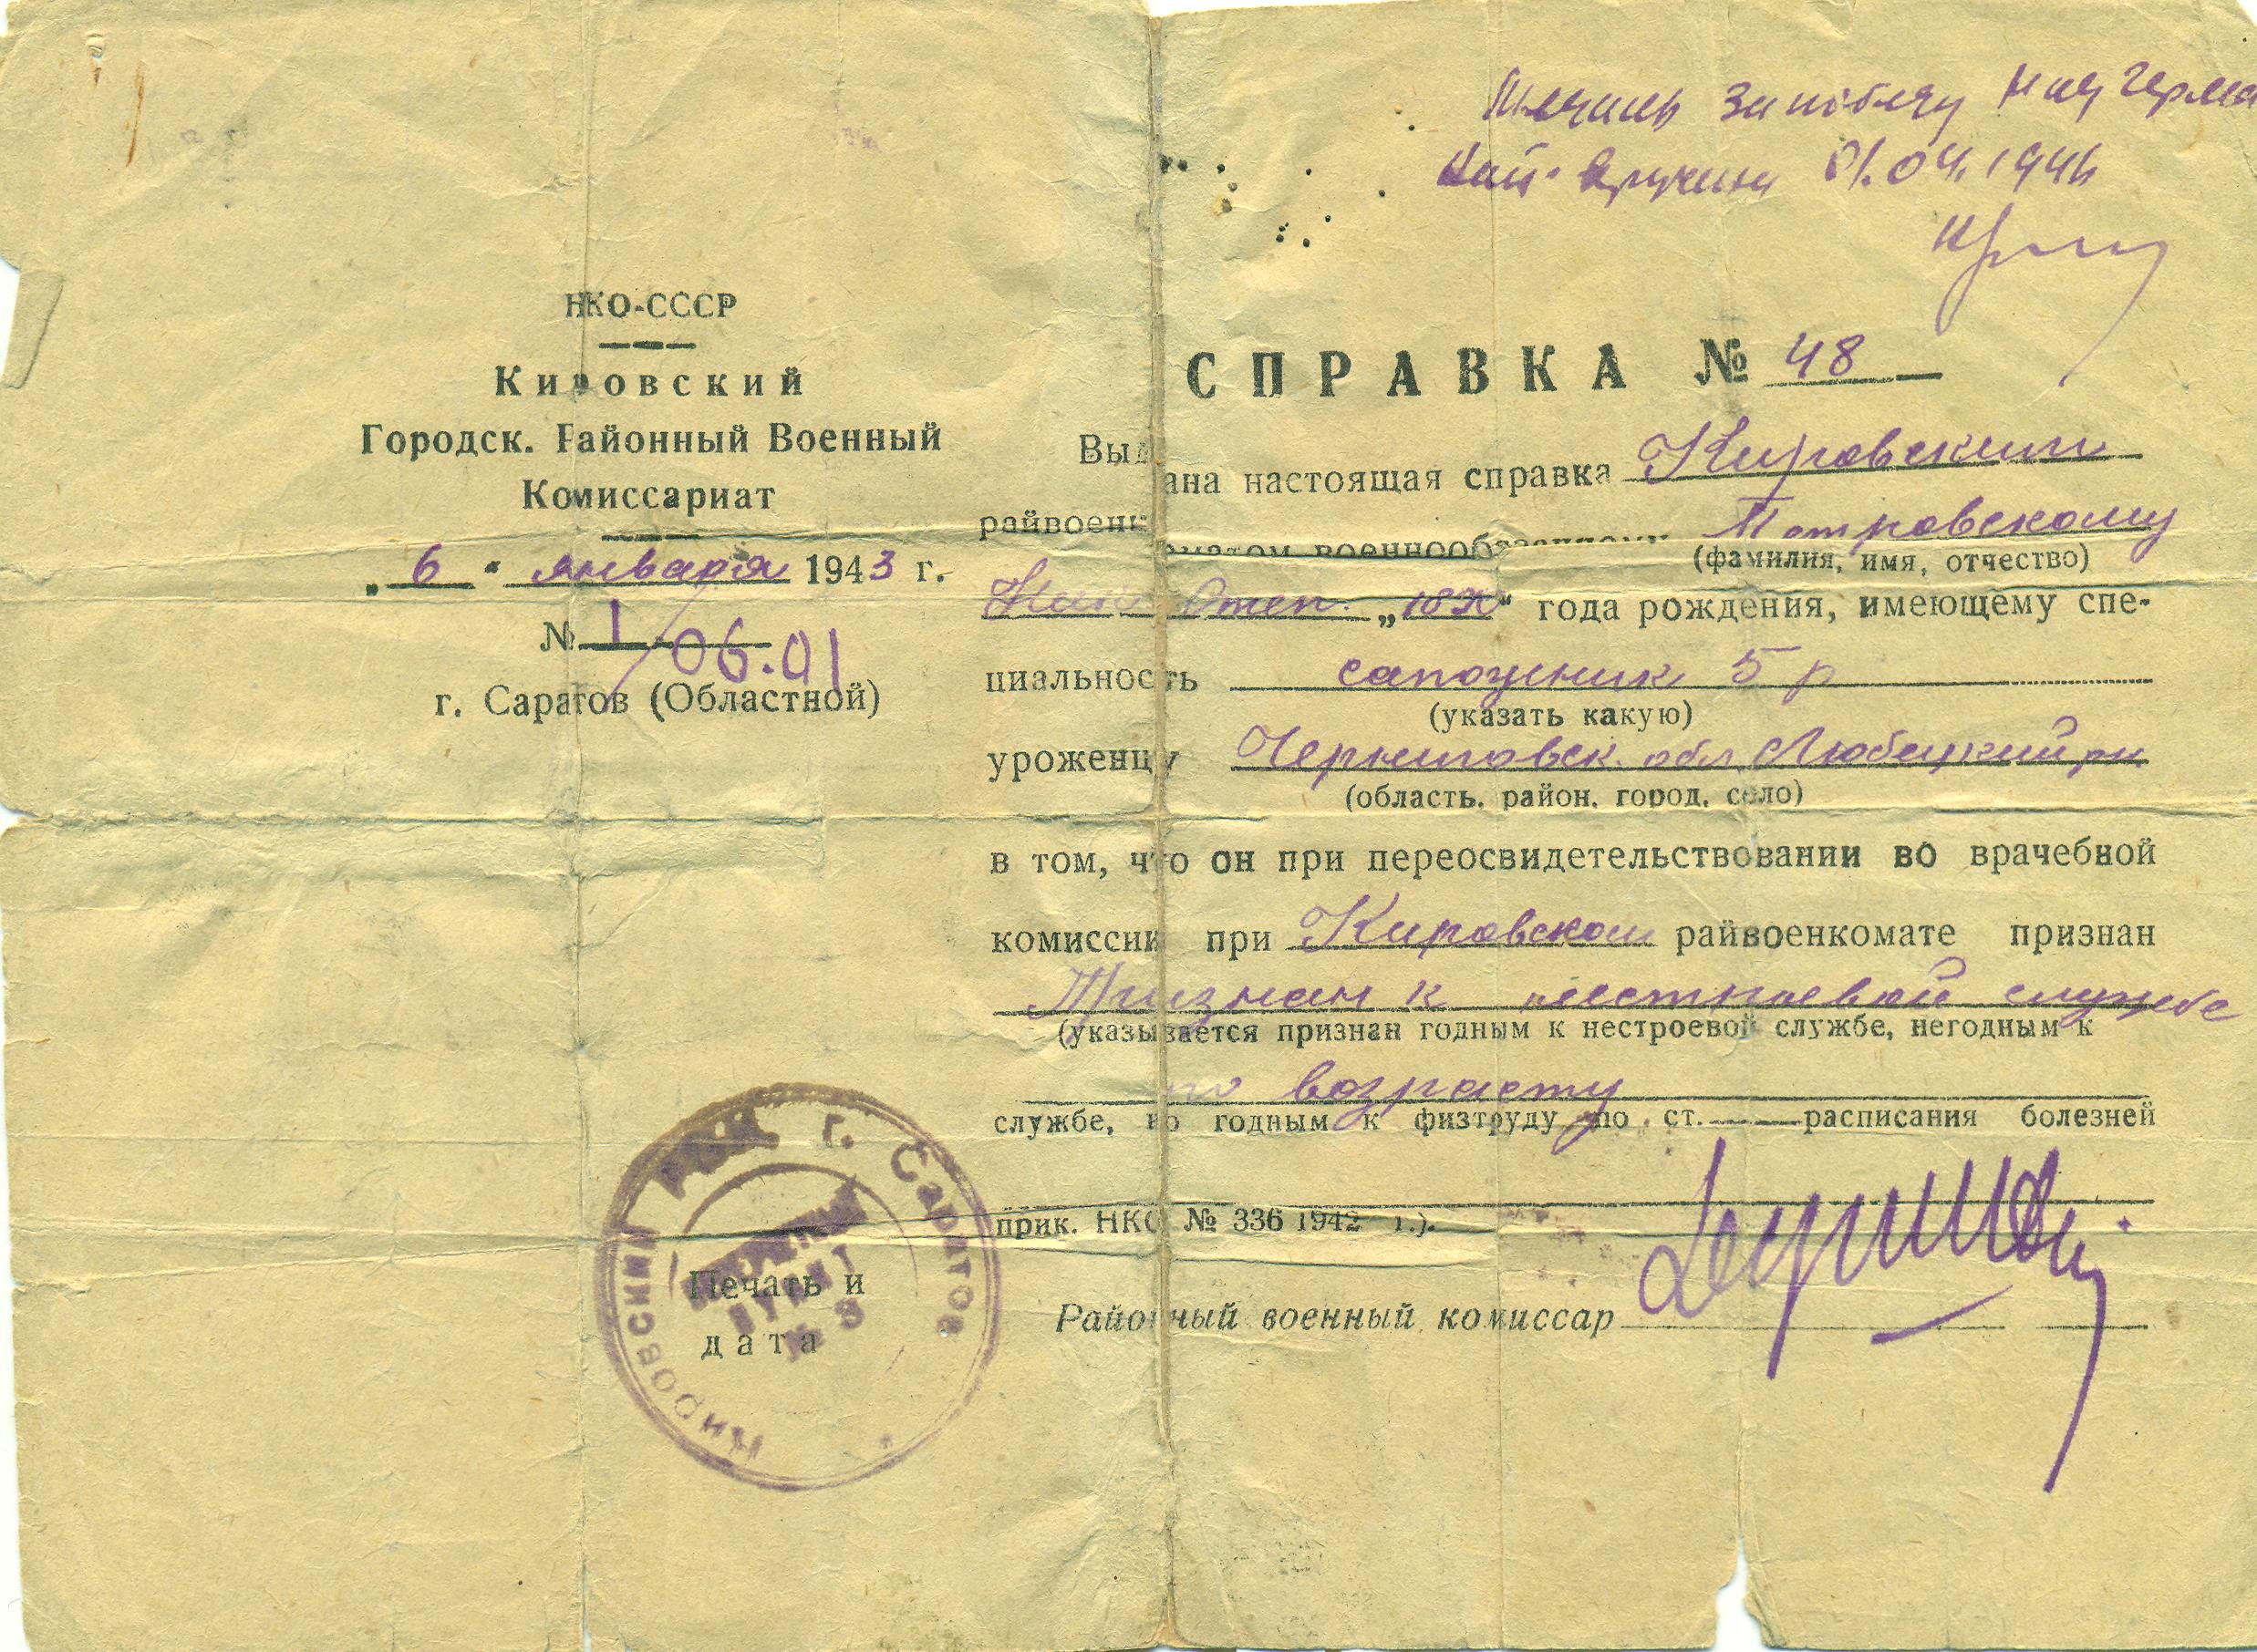 Медаль За победу над Герма
нией вручена 01.04.1946
НКО-СССР
Кировский
Городск. Районный Военный
Комиссариат
„ 6 " января 1943 г.
№ 1/06.01
г. Саратов (Областной)
СПРАВКА № 48
Выдана настоящая справка Кировским
райвоенкоматом военнообязанному Петровскому
(фамилия, имя, отчество)
года рождения, имеющему спе-
циальность сапожник 5 р
(указать какую)
уроженцу Черниговск. обл Любецкий рн
(область, район, город, село)
в том, что он при переосвидетельствовании во врачебной
комиссии при Кировском райвоенкомате признан
Признан к нестроевой службе
(указывается признан годным к нестроевой службе, негодным к
по возрасту
службе, но годным к физтруду по ст. — расписания болезней
прик. НКО № 336 1942 г.).
Районный военный комиссар
Печать и
дата
Кировский РВК г. Саратов
ПУНКТ
№ 3